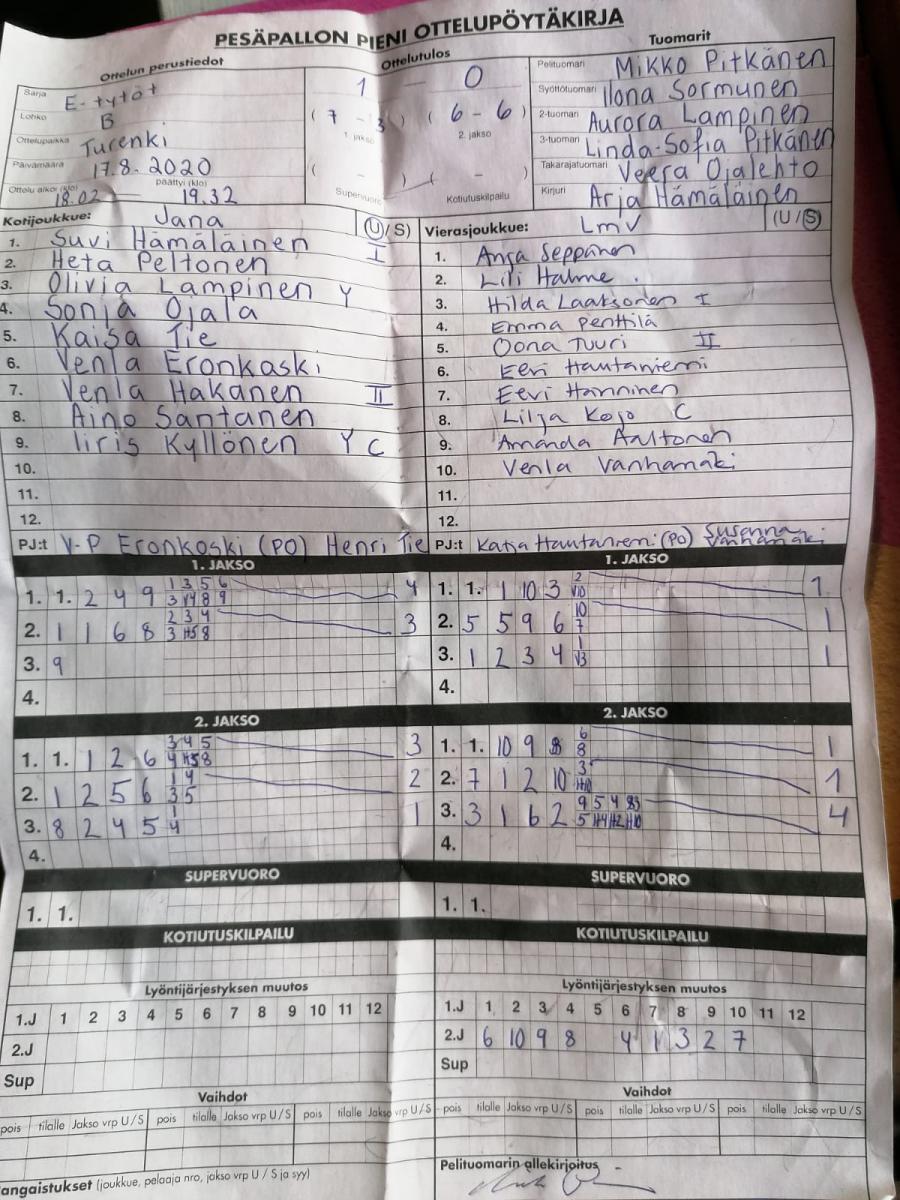 PESÄPALLON PIENI OTTELUPÖYTÄKIRJA
Ottelun perustiedot
Sarja E-tytöt
Lohko B
Ottelupaikka Turenki
Päivämäärä 17.8.2020
Ottelu alkoi (klo) päättyi (klo)
18.02 — 19.32
Ottelutulos
1 — 0
( 7 - 3 ) ( 6 - 6 )
1. jakso 2. jakso
( - ) ( - )
Supervuoro Kotiutuskilpailu
Tuomarit
Pelituomari Mikko Pitkänen
Syöttötuomari Ilona Sormunen
2-tuomari Aurora Lampinen
3-tuomari Linda-Sofia Pitkänen
Takarajatuomari Veera Ojalehto
Kirjuri Arja Hämäläinen
Kotijoukkue: Jana (U/S)
1. Suvi Hämäläinen I
2. Heta Peltonen
3. Olivia Lampinen Y
4. Sonja Ojala
5. Kaisa Tie
6. Venla Eronkoski
7. Venla Hakanen II
8. Aino Santanen
9. Iiris Kyllönen Y C
10.
11.
12.
PJ:t V-P Eronkoski (PO) Henri Tie
Vierasjoukkue: LMV (U/S)
1. Anja Seppänen
2. Lili Halme
3. Hilda Laaksonen I
4. Emma Penttilä
5. Oona Tuuri II
6. Eevi Hautaniemi
7. Eevi Hanninen
8. Lilja Kojo C
9. Amanda Aaltonen
10. Venla Vanhamäki
11.
12.
PJ:t Katja Hautaniemi (PO) Susanna Vanhamäki
1. JAKSO
1. 1. 2 4 9 1 3 5 6 4
3 V4 8 9
2. 1 1 6 8 2 3 4 3
3 H5 8
3. 9
4.
1. JAKSO
1. 1. 1 10 3 2 1
V10
2. 5 5 9 6 10 1
7
3. 1 2 3 4 1 1
V3
4.
2. JAKSO
1. 1. 1 2 6 3 4 5 3
4 H5 8
2. 1 2 5 6 1 4 2
3 5
3. 8 2 4 5 1 1
4
4.
2. JAKSO
1. 1. 10 9 8 6 1
8
2. 7 1 2 10 3 1
H10
3. 3 1 6 2 9 5 4 83 4
5 H4 H2 H10
4.
SUPERVUORO
1. 1.
SUPERVUORO
1. 1.
KOTIUTUSKILPAILU
KOTIUTUSKILPAILU
Lyöntijärjestyksen muutos
1.J 1 2 3 4 5 6 7 8 9 10 11 12
2.J
Sup
Lyöntijärjestyksen muutos
1.J 1 2 3 4 5 6 7 8 9 10 11 12
2.J 6 10 9 8 4 1 3 2 7
Sup
Vaihdot
pois tilalle Jakso vrp U/S pois tilalle Jakso vrp U/S pois tilalle Jakso vrp U/S
Vaihdot
pois tilalle Jakso vrp U/S pois tilalle Jakso vrp U/S pois tilalle Jakso vrp U/S
angaistukset (joukkue, pelaaja nro, jakso vrp U / S ja syy)
Pelituomarin allekirjoitus